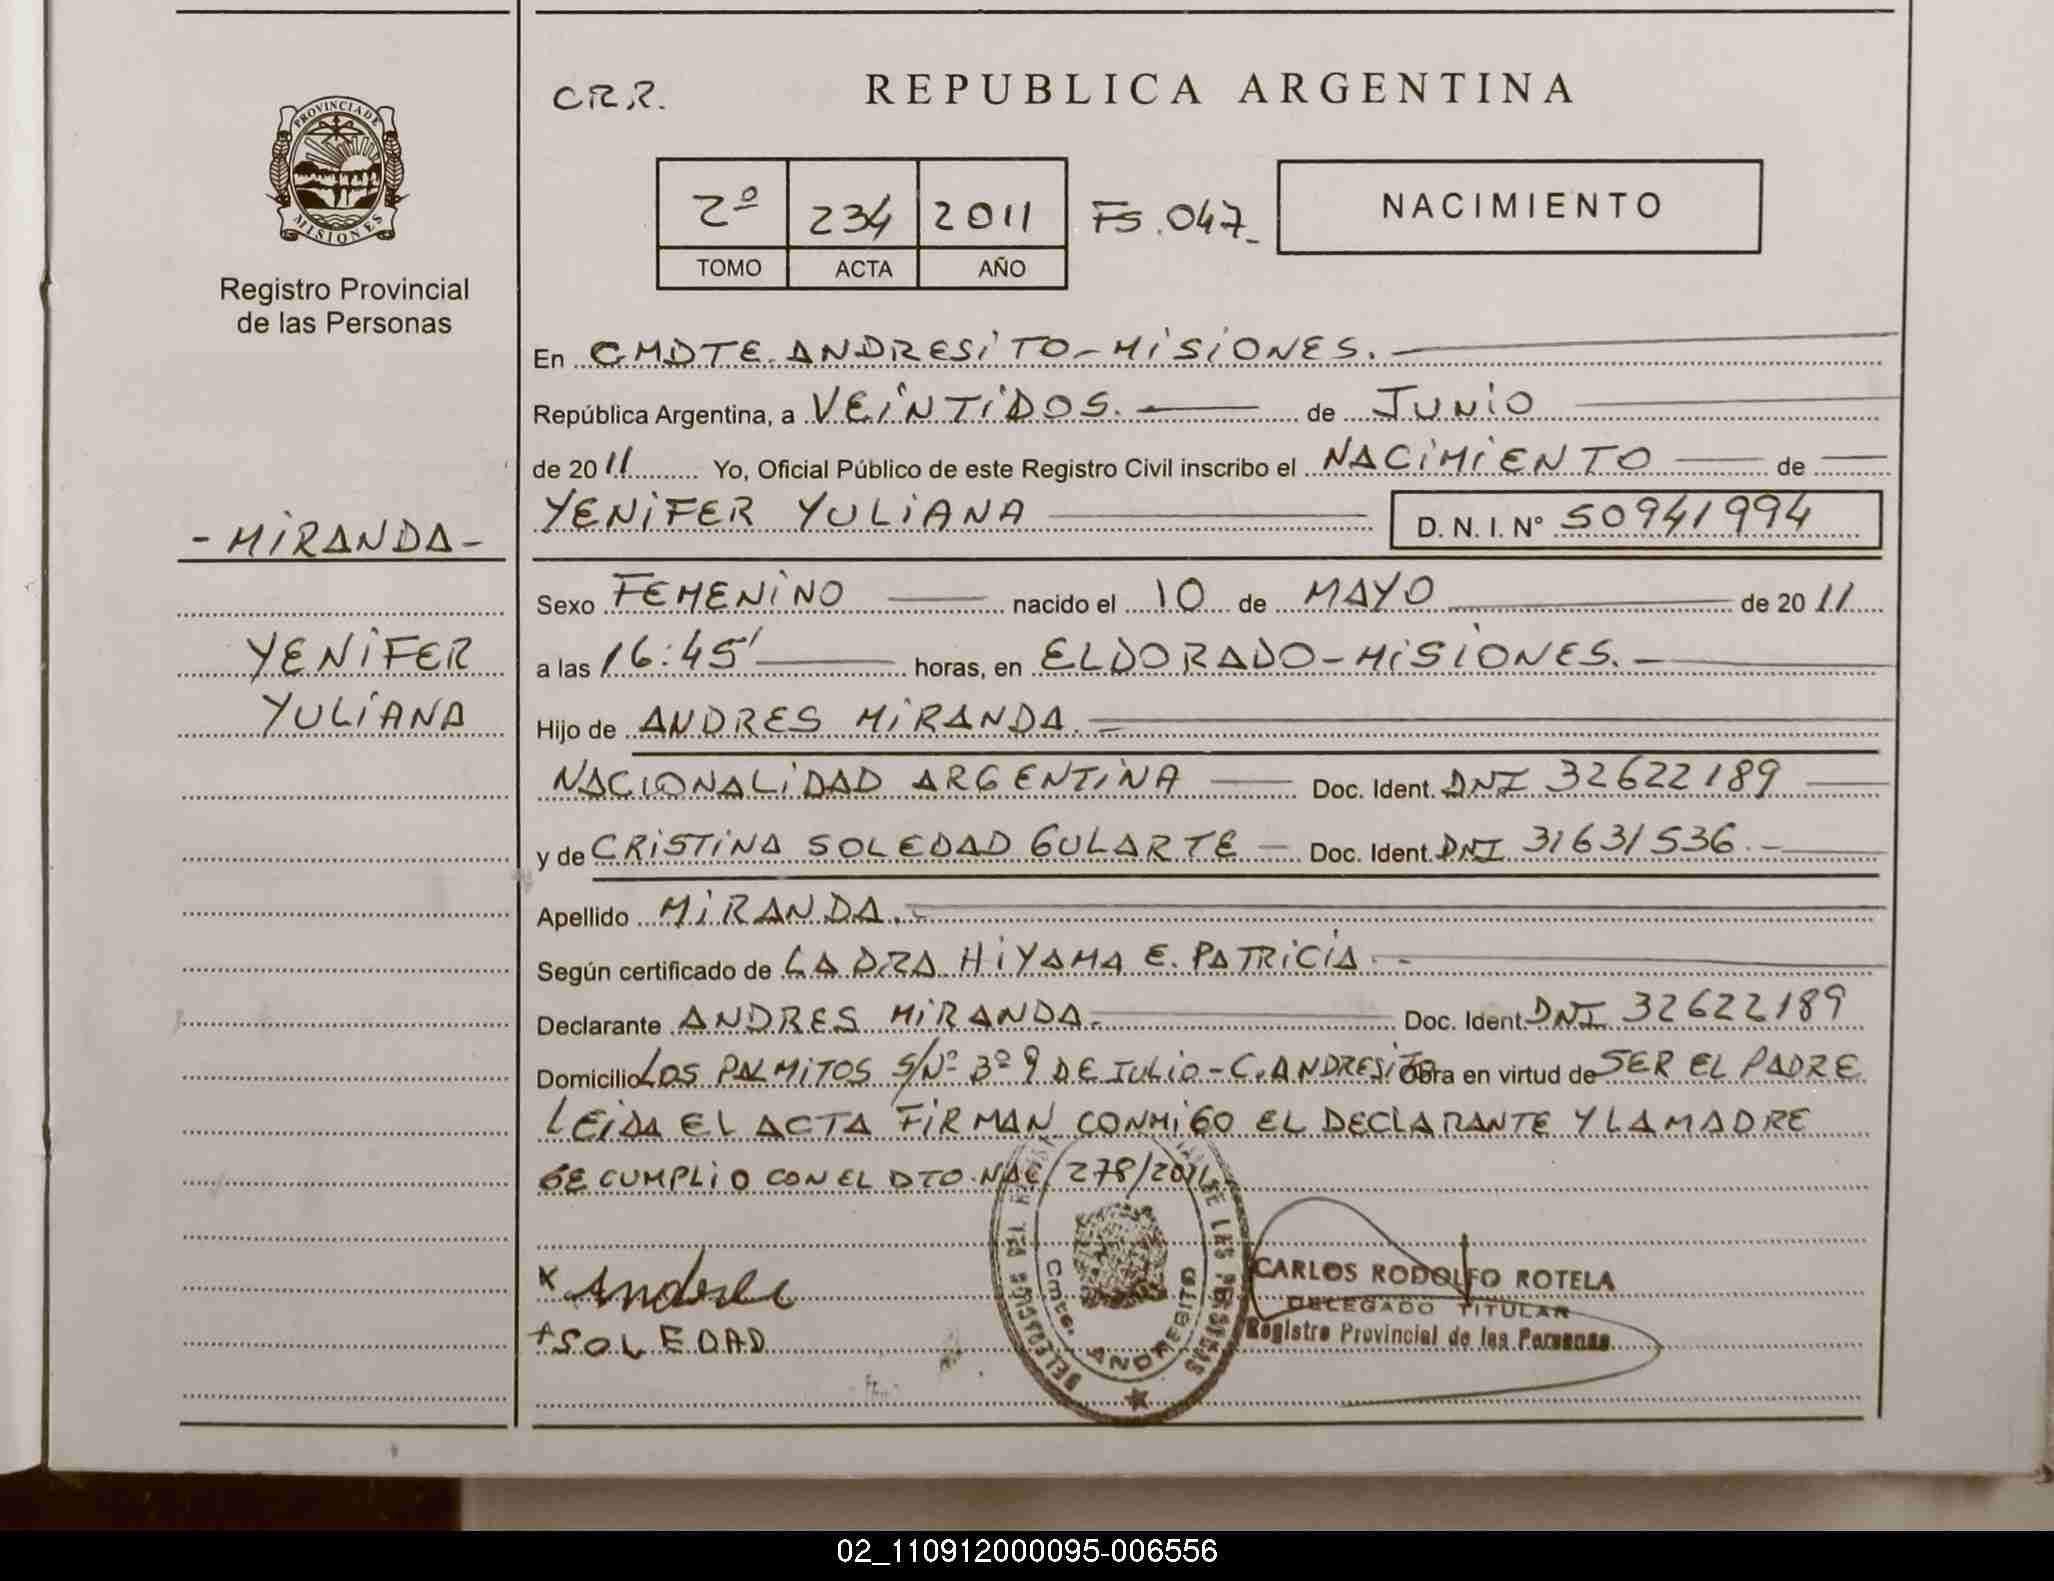 C.R.R.
REPUBLICA ARGENTINA
PROVINCIA DE
MISIONES
Registro Provincial
de las Personas
2º 234 2011 FS.047_
TOMO ACTA AÑO
NACIMIENTO
En CMDTE. ANDRESITO - MISIONES.
República Argentina, a VEINTIDOS. de JUNIO
de 2011 Yo, Oficial Público de este Registro Civil inscribo el NACIMIENTO de
YENIFER YULIANA D. N. I. N° 50941994
- MIRANDA -
YENIFER
YULIANA
Sexo FEMENINO nacido el 10 de MAYO de 2011
a las 16:45' horas, en ELDORADO - MISIONES.
Hijo de ANDRES MIRANDA.
NACIONALIDAD ARGENTINA Doc. Ident. DNI 32622189
y de CRISTINA SOLEDAD GULARTE Doc. Ident. DNI 31631536.
Apellido MIRANDA.
Según certificado de LA DRA HIYAMA E. PATRICIA
Declarante ANDRES MIRANDA. Doc. Ident. DNI 32622189
Domicilio LOS PALMITOS S/Nº Bº 9 DE JULIO - C. ANDRESITO Obra en virtud de SER EL PADRE
LEIDA EL ACTA FIRMAN CONMIGO EL DECLARANTE Y LA MADRE
SE CUMPLIO CON EL DTO. NAC/278/2011
x Andres
+ SOLEDAD
Cmte. ANDRESITO
CARLOS RODOLFO ROTELA
DELEGADO TITULAR
Registro Provincial de las Personas
02_110912000095-006556